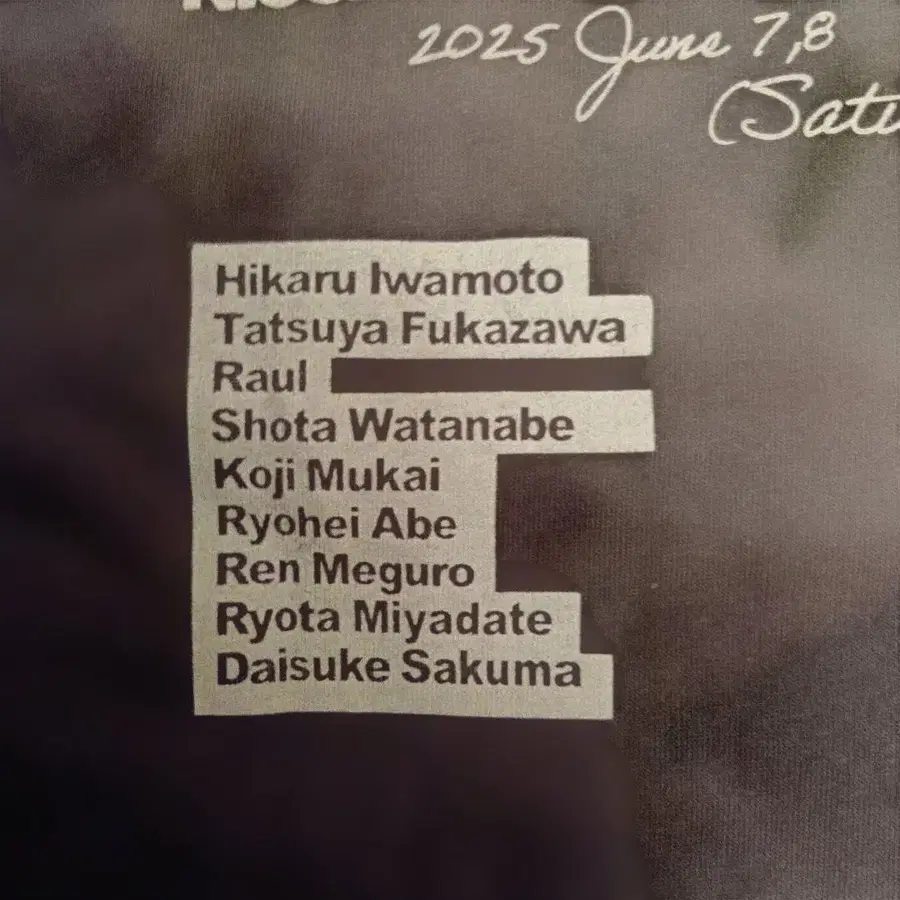 2025 June 7,8
Hikaru Iwamoto
Tatsuya Fukazawa
Raul
Shota Watanabe
Koji Mukai
Ryohei Abe
Ren Meguro
Ryota Miyadate
Daisuke Sakuma